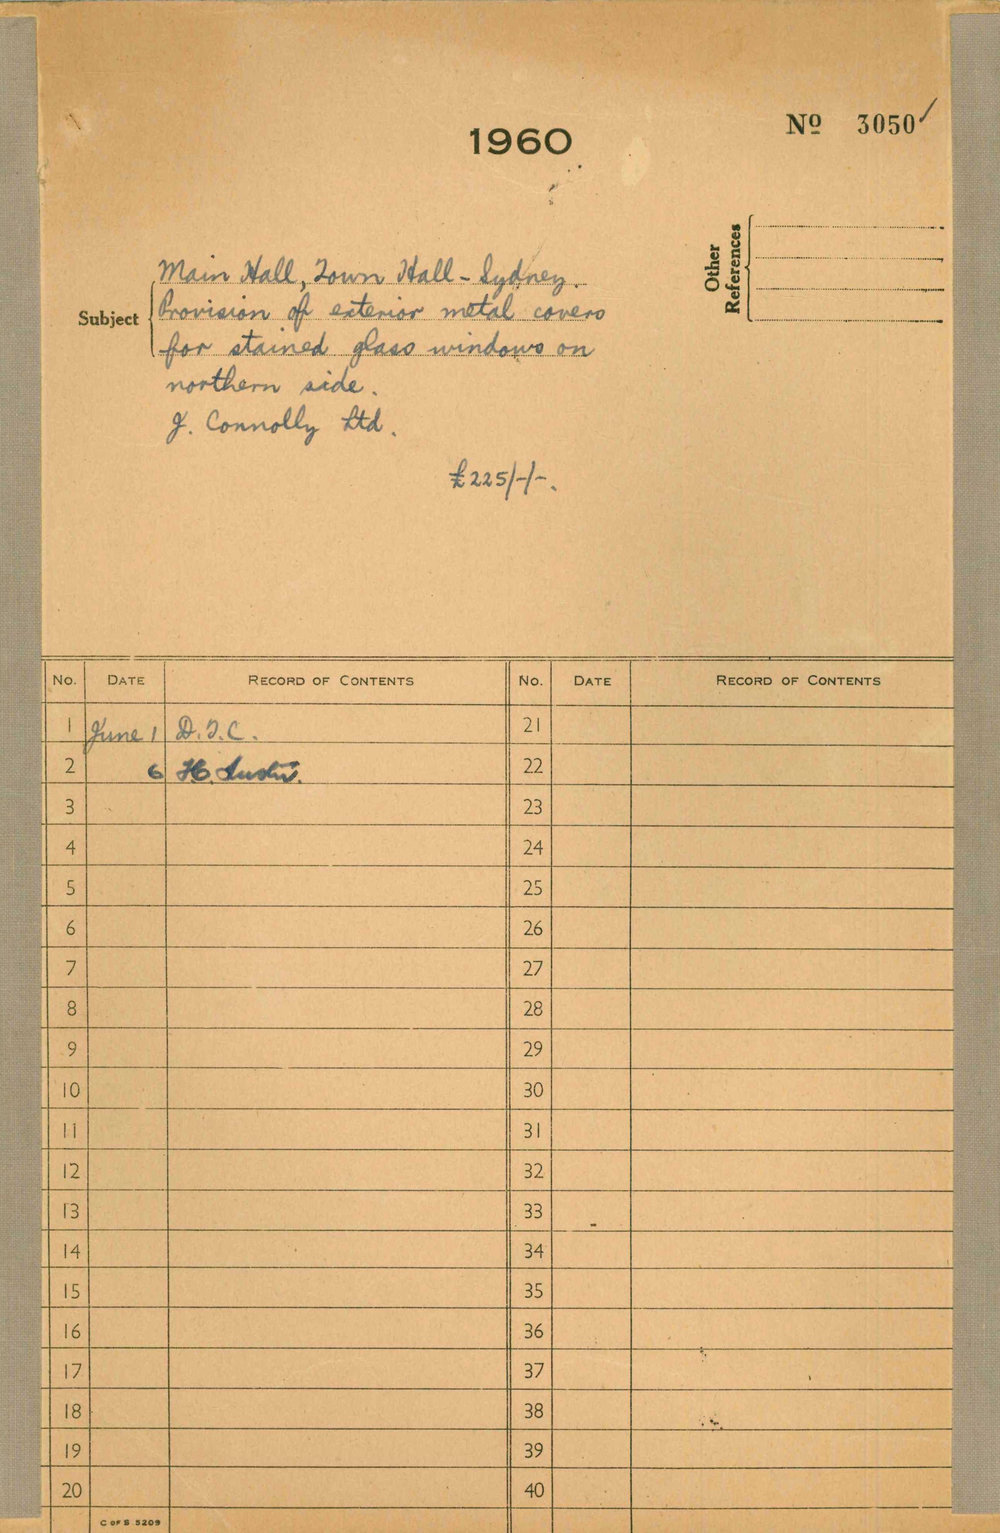 1960
Nº 3050
Other
References
Subject
Main Hall, Town Hall - Sydney.
Provision of exterior metal covers
for stained glass windows on
northern side.
J. Connolly Ltd.
£225/-/-.
No. DATE RECORD OF CONTENTS No. DATE RECORD OF CONTENTS
1 June 1 D.T.C. 21
2 6 H. 22
3 23
4 24
5 25
6 26
7 27
8 28
9 29
10 30
11 31
12 32
13 33
14 34
15 35
16 36
17 37
18 38
19 39
20 40
C OF S 5209